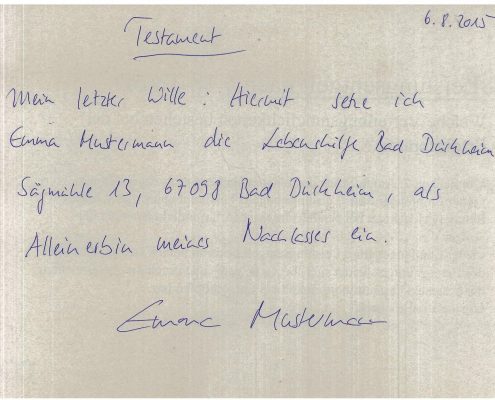 6.8.2015
Testament
Mein letzter Wille: Hiermit setze ich
Emma Mustermann die Lebenshilfe Bad Dürkheim
Sägmühle 13, 67098 Bad Dürkheim, als
Alleinerbin meines Nachlasses ein.
Emma Mustermann